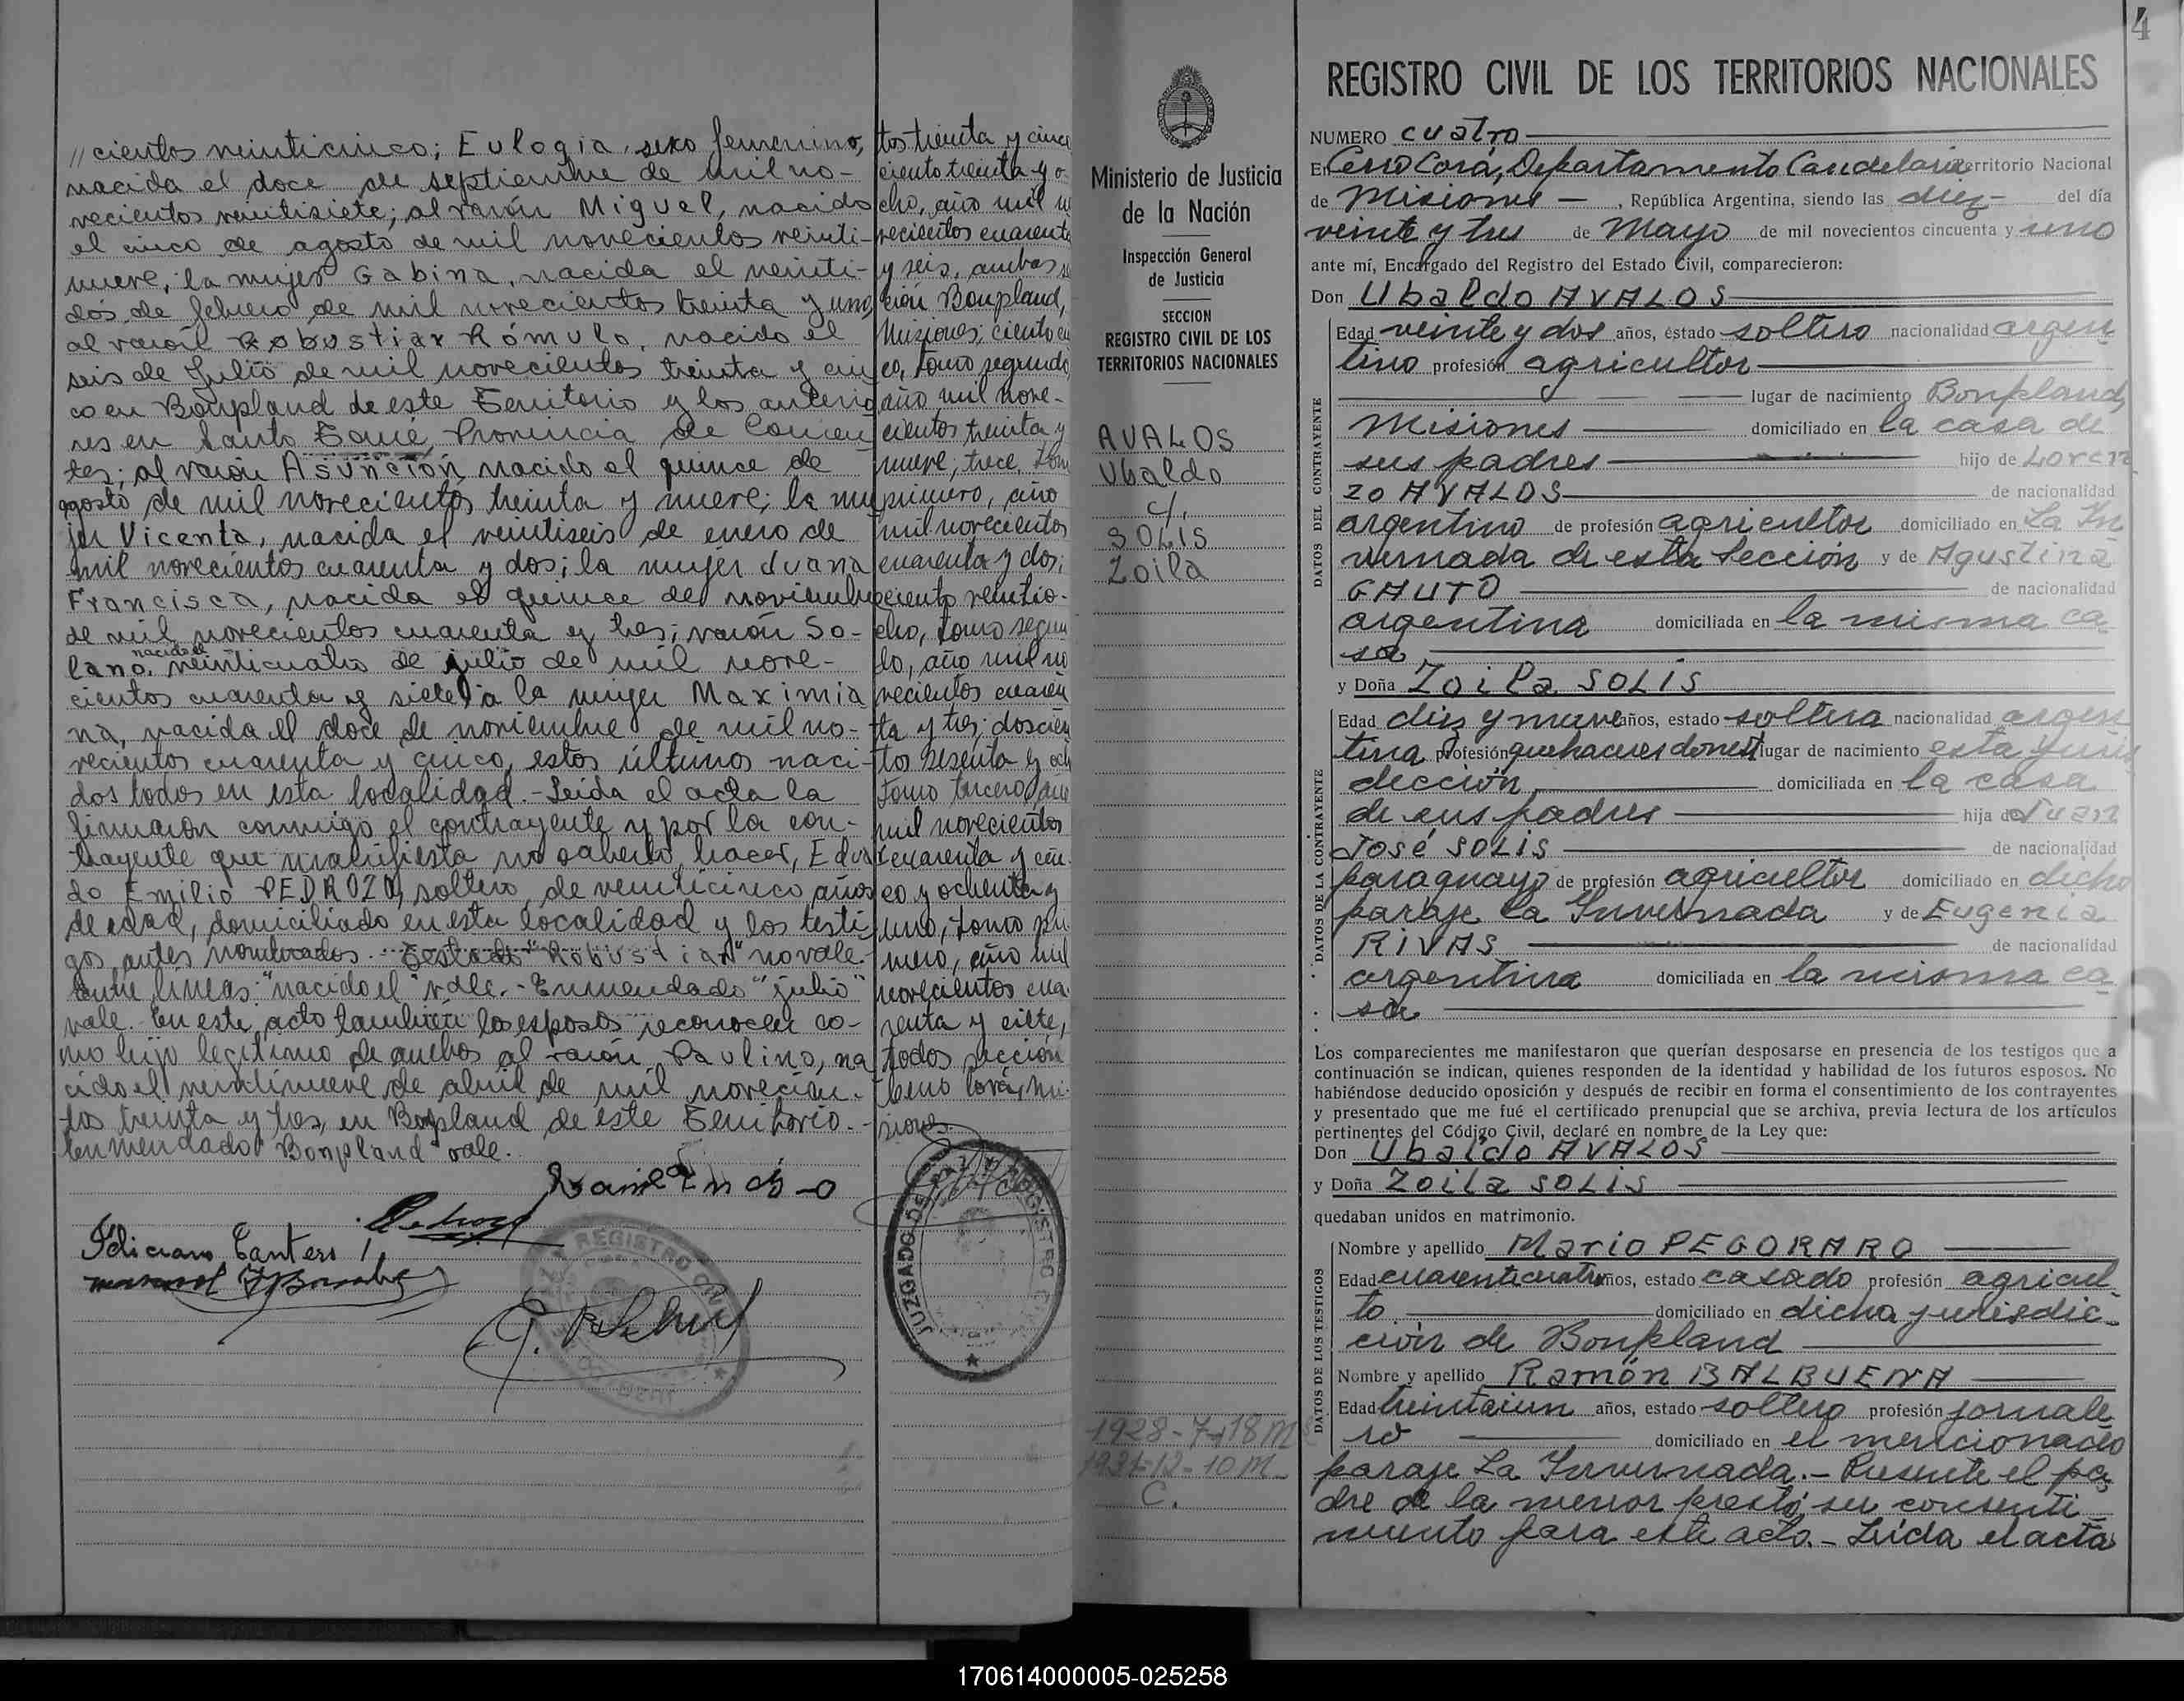 // cientos veinticinco; Eulogia, sexo femenino,
nacida el doce de septiembre de mil no-
vecientos veintisiete; al varón Miguel, nacido
el cinco de agosto de mil novecientos veinti-
nueve, la mujer Gabina, nacida el veinti-
dós de febrero de mil novecientos treinta y uno,
al varón Robustiar Rómulo, nacido el
seis de Julio de mil novecientos treinta y cin
co en Bonpland de este Territorio y los anterio
res en Santo Tomé, Provincia de Corrien
tes; al varón Asunción, nacido el quince de
agosto de mil novecientos treinta y nueve; la mu
jer Vicenta, nacida el veintiseis de enero de
mil novecientos cuarenta y dos; la mujer Juana
Francisca, nacida el quince de noviembre
de mil novecientos cuarenta y tres; varón So-
nacido el
lano, veinticuatro de julio de mil nove-
cientos cuarenta y siete a la mujer Maximia
na, nacida el doce de noviembre de mil no-
vecientos cuarenta y cinco, estos últimos naci-
dos todos en esta localidad.- Leída el acta la
firmaron conmigo el contrayente y por la con-
trayente que manifiesta no saberlo hacer,
do Emilio PEDROZO, soltero, de veinticinco años
de edad, domiciliado en esta localidad y los testi
gos antes nombrados.- Testado "Robustiar" no vale.-
Entre líneas: "nacido el" vale.- Enmendado "julio"
vale. En este acto también los esposos reconocen co-
mo hijo legítimo de ambos al varón Paulino, na
cido el veintinueve de abril de mil novecien-
tos treinta y tres, en Bonpland de este Territorio.-
Enmendado "Bonpland" vale.
tos treinta y cinco
ciento treinta y o-
cho, año mil no
vecientos cuarenta
y seis, ambos se
ción Bonpland,
Misiones; ciento cin
co, tomo segundo,
año mil nove-
cientos treinta y
nueve, trece, tomo
primero, año
mil novecientos
cuarenta y dos;
ciento veintio-
cho, tomo segun
do, año mil no
vecientos cuaren
ta y tres; doscien
tos sesenta y och
tomo tercero, año
mil novecientos
cuarenta y cin-
co y ochenta y
uno, tomo pri
mero, año mil
novecientos cua-
renta y siete,
todos sección
Cerro Corá, Mi-
siones.
Pedrozo
Feliciano Cantero
REGISTRO CIVIL
JUZGADO DE
REGISTRO CIVIL
Ministerio de Justicia
de la Nación
Inspección General
de Justicia
SECCION
REGISTRO CIVIL DE LOS
TERRITORIOS NACIONALES
AVALOS
Ubaldo
c/.
SOLIS
Zoila
1928-7-18 M
1931-12-10 M-
C.
4
REGISTRO CIVIL DE LOS TERRITORIOS NACIONALES
NUMERO cuatro
En Cerro Corá, Departamento Candelaria Territorio Nacional
de Misiones — , República Argentina, siendo las diez- del día
veinte y tres de Mayo de mil novecientos cincuenta y uno
ante mí, Encargado del Registro del Estado Civil, comparecieron:
Don Ubaldo AVALOS
DATOS DEL CONTRAYENTE
Edad veinte y dos años, estado soltero nacionalidad argen
tino profesión agricultor
lugar de nacimiento Bonpland,
Misiones domiciliado en la casa de
sus padres hijo de Loren
zo AVALOS de nacionalidad
argentino de profesión agricultor domiciliado en La In
vernada de esta Sección y de Agustina
GAUTO de nacionalidad
argentina domiciliada en la misma ca
sa
y Doña Zoila SOLIS
DATOS DE LA CONTRAYENTE
Edad diez y nueve años, estado soltera nacionalidad argen
tina profesión quehaceres domést lugar de nacimiento esta juris
dicción domiciliada en la casa
de sus padres hija de Juan
José SOLIS de nacionalidad
paraguayo de profesión agricultor domiciliado en dicho
paraje La Invernada y de Eugenia
RIVAS de nacionalidad
argentina domiciliada en la misma ca
sa
Los comparecientes me manifestaron que querían desposarse en presencia de los testigos que a
continuación se indican, quienes responden de la identidad y habilidad de los futuros esposos. No
habiéndose deducido oposición y después de recibir en forma el consentimiento de los contrayentes
y presentado que me fué el certificado prenupcial que se archiva, previa lectura de los artículos
pertinentes del Código Civil, declaré en nombre de la Ley que:
Don Ubaldo AVALOS
y Doña Zoila SOLIS
quedaban unidos en matrimonio.
DATOS DE LOS TESTIGOS
Nombre y apellido Mario PEGORARO
Edad cuarenticuatro años, estado casado profesión agricul
to domiciliado en dicha jurisdic-
ción de Bonpland
Nombre y apellido Ramón BALBUENA
Edad treintaiun años, estado soltero profesión jornale
ro domiciliado en el mencionado
paraje La Invernada.- Presente el pa
dre de la menor prestó su consenti-
miento para este acto.- Leída el acta
170614000005-025258